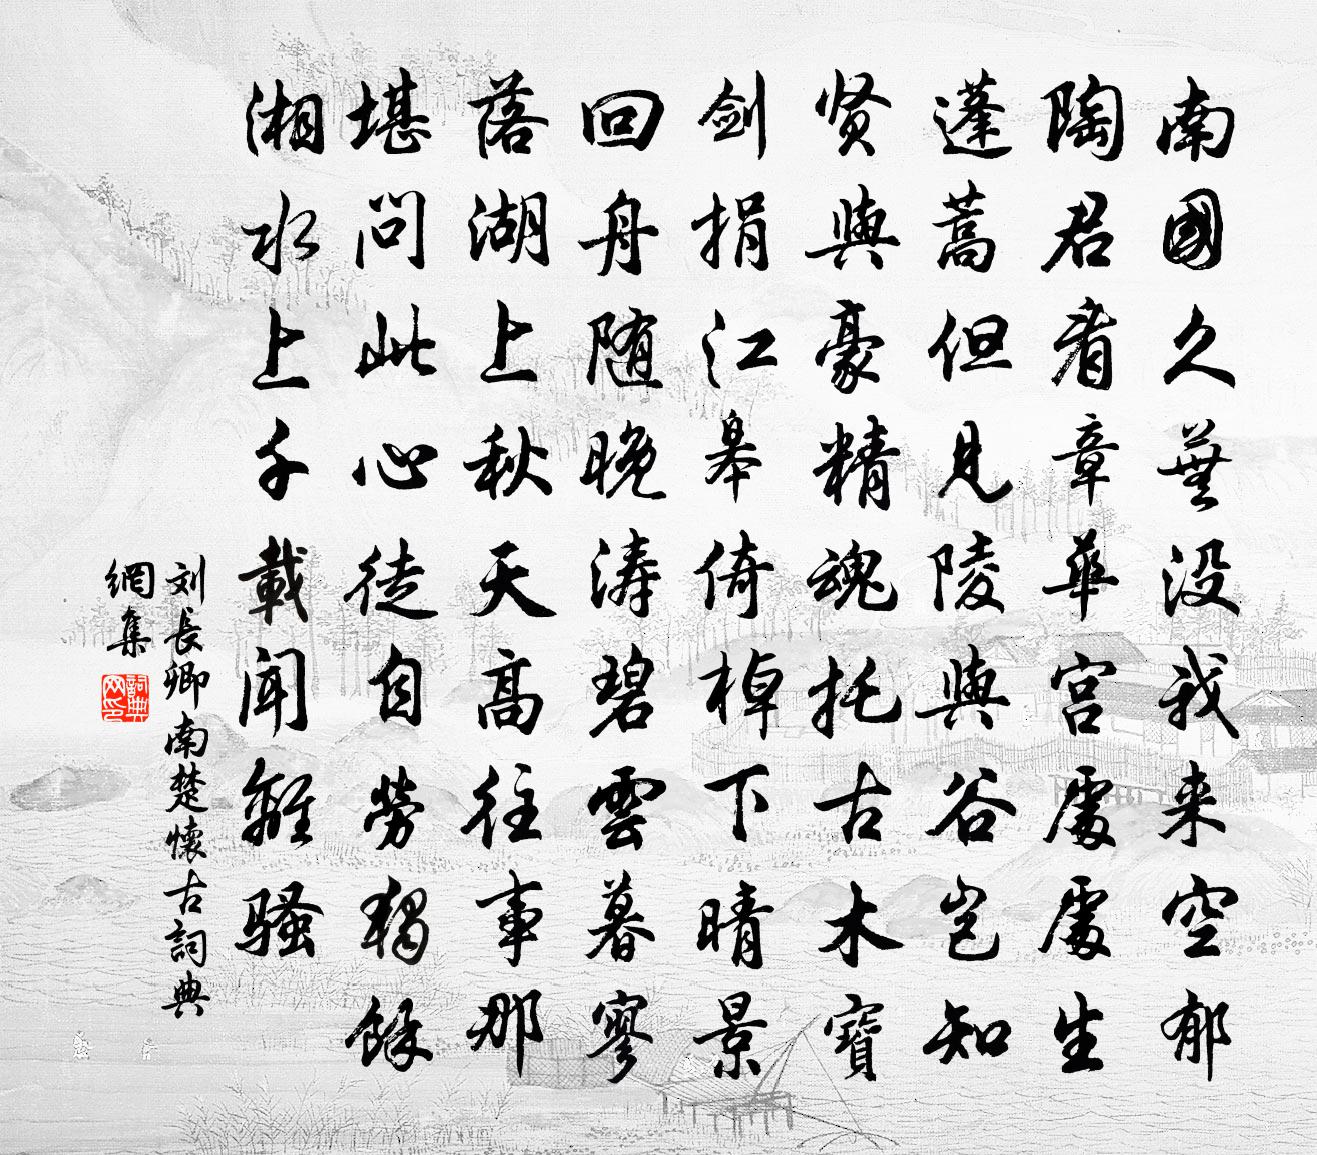 南國久蕪没我来空郁
陶君看章華宫處處生
蓬蒿但見陵與谷豈知
贤與豪精魂托古木寶
剑捐江皋倚棹下晴景
回舟随晚涛碧雲暮寥
落湖上秋天高往事那
堪問此心徒自勞獨餘
湘水上千載聞離騷
刘長卿南楚懷古詞典
網集
詞典
网印